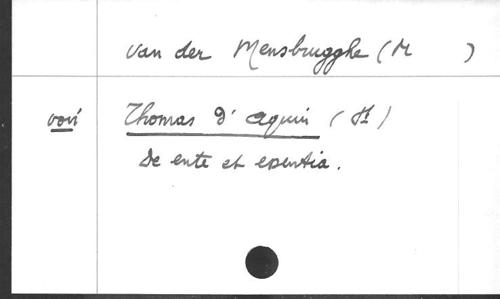 van der Mensbrugghe (M )
voir Thomas d' Aquin (St)
De ente et essentia.